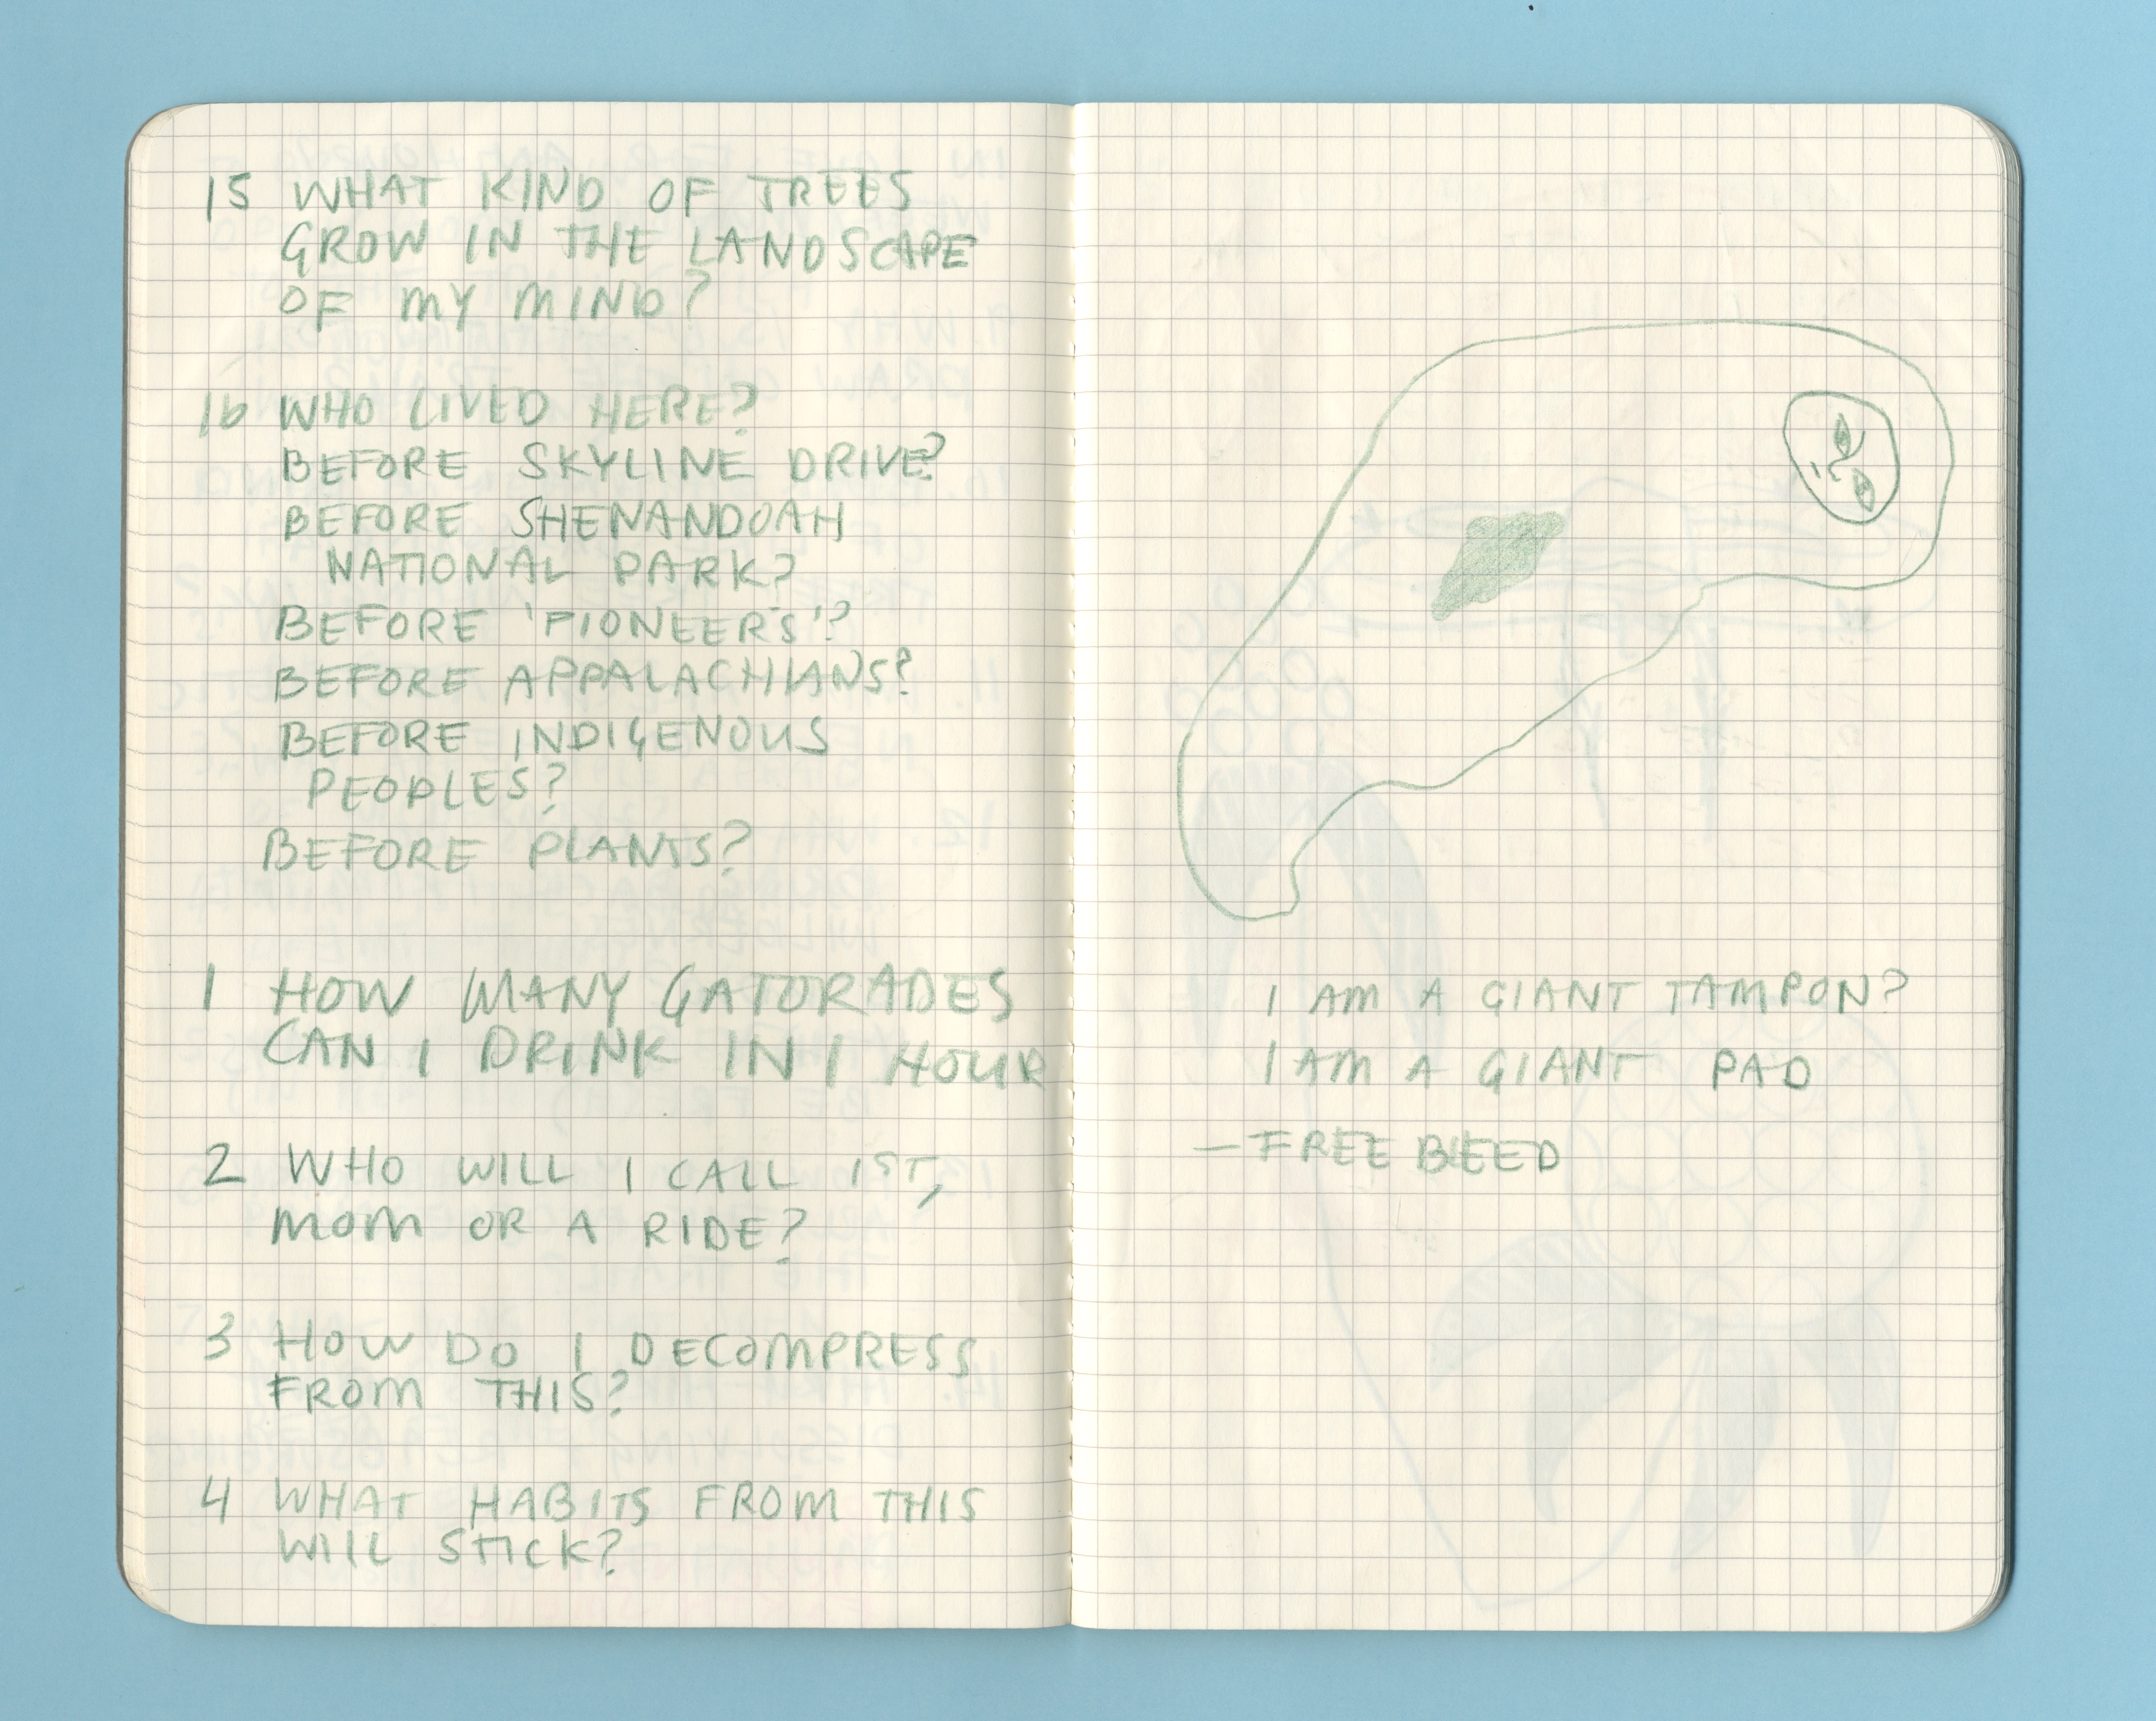 15 WHAT KIND OF TREES
GROW IN THE LANDSCAPE
OF MY MIND?
16 WHO LIVED HERE?
BEFORE SKYLINE DRIVE?
BEFORE SHENANDOAH
NATIONAL PARK?
BEFORE 'PIONEERS'?
BEFORE APPALACHIANS?
BEFORE INDIGENOUS
PEOPLES?
BEFORE PLANTS?
1 HOW MANY GATORADES
CAN I DRINK IN 1 HOUR
2 WHO WILL I CALL 1ST,
MOM OR A RIDE?
3 HOW DO I DECOMPRESS
FROM THIS?
4 WHAT HABITS FROM THIS
WILL STICK?
I AM A GIANT TAMPON?
I AM A GIANT PAD
— FREE BLEED